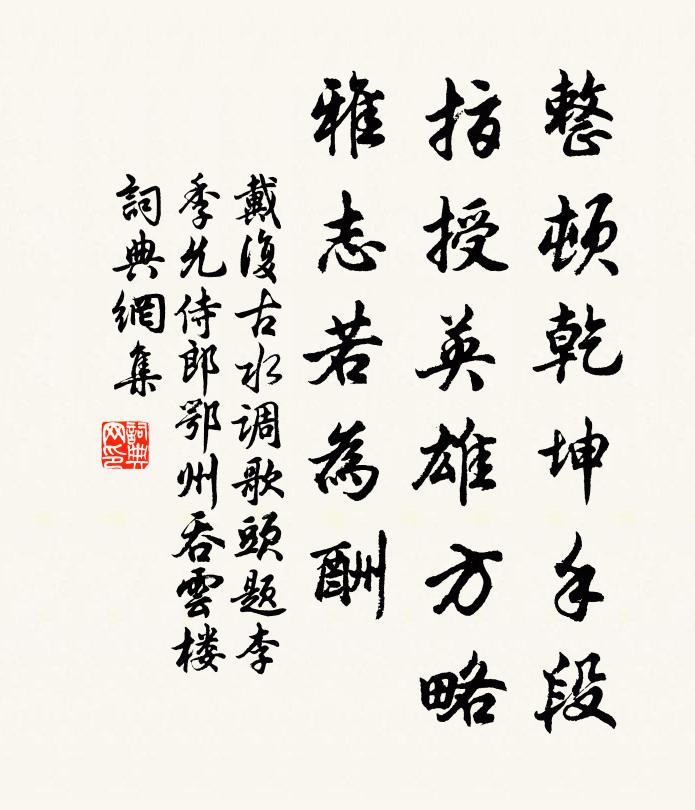 整頓乾坤手段
指授英雄方略
雅志若為酬
戴復古水调歌頭題李
季允侍郎鄂州吞雲楼
詞典網集
詞典
网印